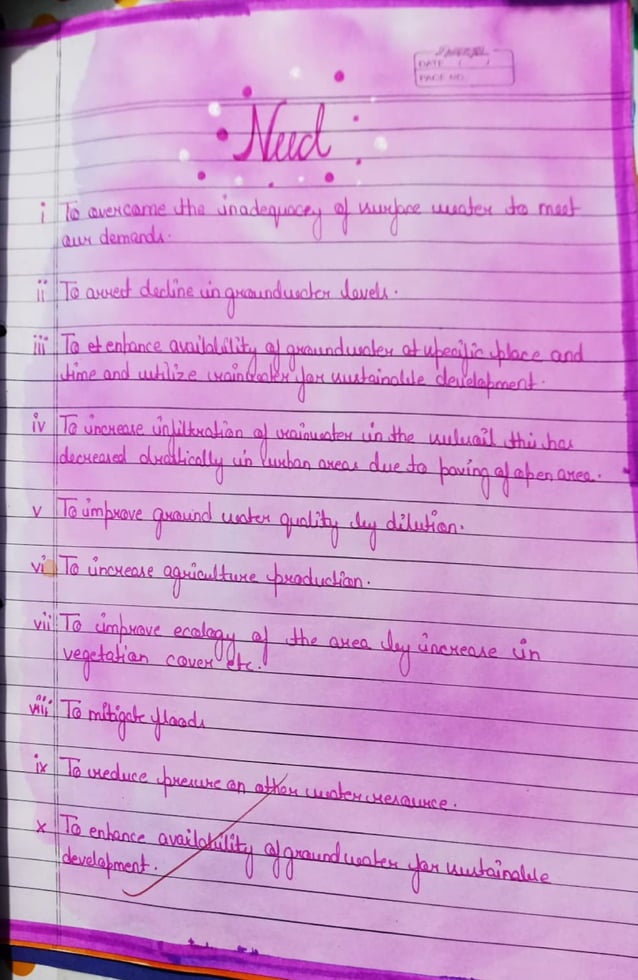 DATE / /
PAGE NO.
Need
i To overcome the inadequacey of surface water to meet
our demands.
ii To arrest decline in groundwater levels.
iii To et enhance availability of groundwater at specific place and
time and utilize rainwater for sustainable development.
iv To increase infiltration of rainwater in the subsoil this has
decreased drastically in urban areas due to paving of open area.
v To improve ground water quality by dilution.
vi To increase agriculture production.
vii To improve ecology of the area by increase in
vegetation cover etc.
viii To mitigate floods
ix To reduce presure on other water resource.
x To enhance availability of ground water for sustainable
development.